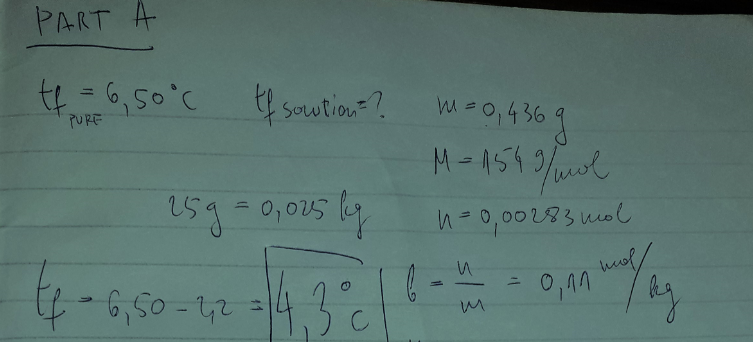 PART A
tf PURE = 6,50°C tf soution=? m = 0,436 g
M = 154 g/mol
25g = 0,025 kg n = 0,00283 mol
tf = 6,50 - 2,2 = 4,3°C b = n/m = 0,11 mol/kg